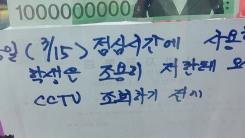 1000000000
일 (3/15) 점심시간에 사용
학생은 조용히 저한테
CCTV 조회하기 전에